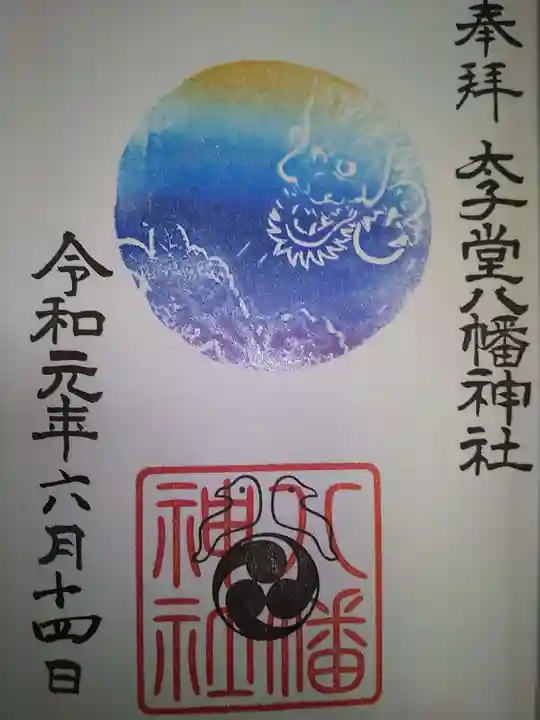 奉拝 太子堂八幡神社
令和元年六月十四日
八幡
神社